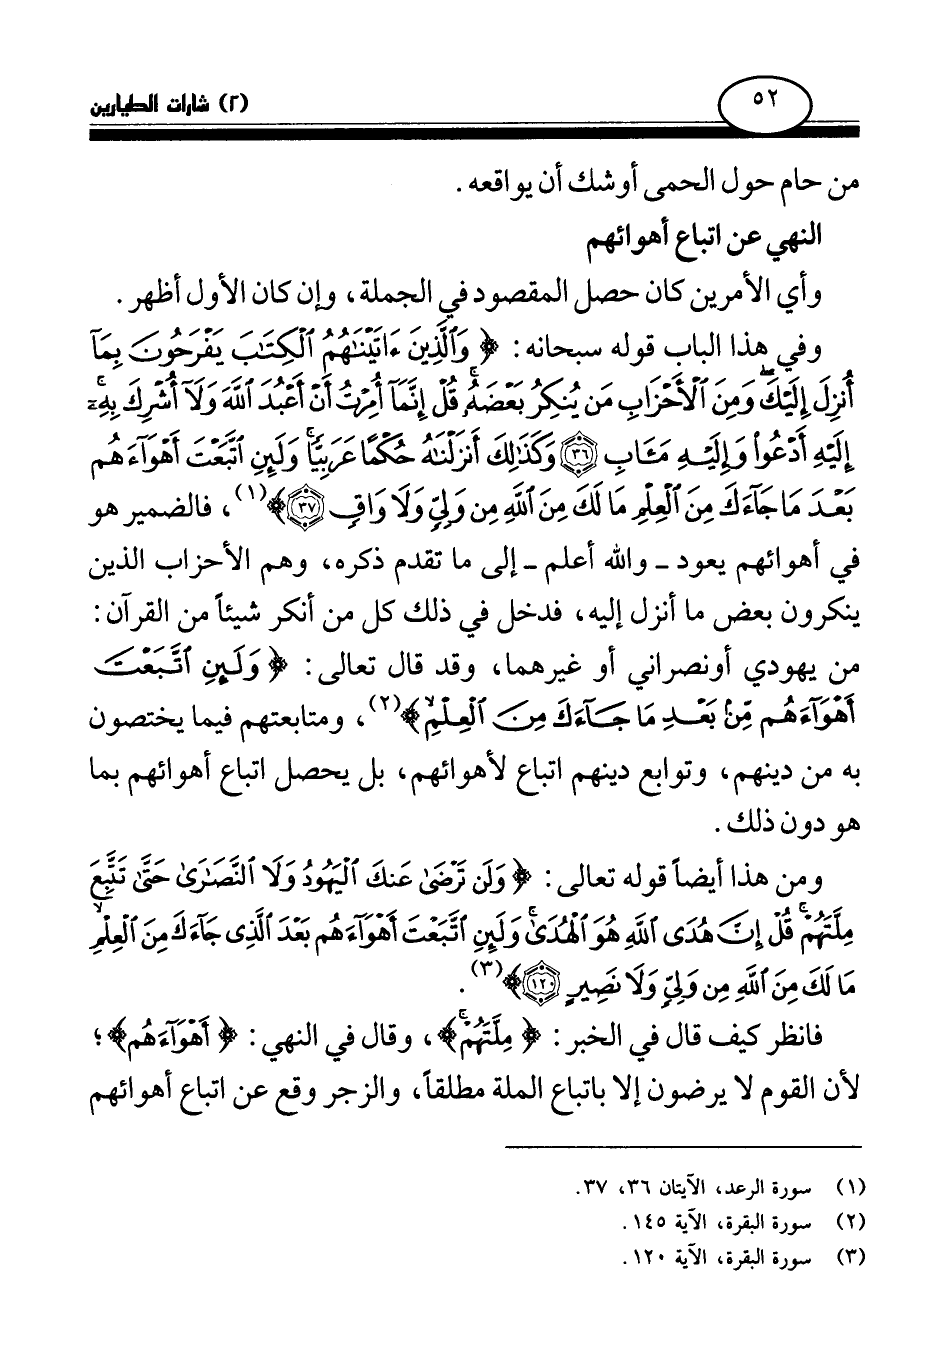 ٥٢
(٢) شارات الطيارين
من حام حول الحمى أوشك أن يواقعه .
النهي عن اتباع أهوائهم
وأي الأمرين كان حصل المقصود في الجملة، وإن كان الأول أظهر .
وفي هذا الباب قوله سبحانه: ﴿ وَٱلَّذِينَ ءَاتَيْنَٰهُمُ ٱلْكِتَٰبَ يَفْرَحُونَ بِمَآ
أُنزِلَ إِلَيْكَ ۖ وَمِنَ ٱلْأَحْزَابِ مَن يُنكِرُ بَعْضَهُۥ ۚ قُلْ إِنَّمَآ أُمِرْتُ أَنْ أَعْبُدَ ٱللَّهَ وَلَآ أُشْرِكَ بِهِۦٓ ۚ
إِلَيْهِ أَدْعُوا۟ وَإِلَيْهِ مَـَٔابِ ﴿٣٦﴾ وَكَذَٰلِكَ أَنزَلْنَٰهُ حُكْمًا عَرَبِيًّا ۚ وَلَئِنِ ٱتَّبَعْتَ أَهْوَآءَهُم
بَعْدَ مَا جَآءَكَ مِنَ ٱلْعِلْمِ مَا لَكَ مِنَ ٱللَّهِ مِن وَلِىٍّ وَلَا وَاقٍ ﴿٣٧﴾﴾(١)، فالضمير هو
في أهوائهم يعود - والله أعلم - إلى ما تقدم ذكره، وهم الأحزاب الذين
ينكرون بعض ما أنزل إليه، فدخل في ذلك كل من أنكر شيئاً من القرآن:
من يهودي أونصراني أو غيرهما، وقد قال تعالى: ﴿ وَلَئِنِ ٱتَّبَعْتَ
أَهْوَآءَهُم مِّنۢ بَعْدِ مَا جَآءَكَ مِنَ ٱلْعِلْمِ ۙ﴾(٢)، ومتابعتهم فيما يختصون
به من دينهم، وتوابع دينهم اتباع لأهوائهم، بل يحصل اتباع أهوائهم بما
هو دون ذلك .
ومن هذا أيضاً قوله تعالى: ﴿ وَلَن تَرْضَىٰ عَنكَ ٱلْيَهُودُ وَلَا ٱلنَّصَٰرَىٰ حَتَّىٰ تَتَّبِعَ
مِلَّتَهُمْ ۗ قُلْ إِنَّ هُدَى ٱللَّهِ هُوَ ٱلْهُدَىٰ ۗ وَلَئِنِ ٱتَّبَعْتَ أَهْوَآءَهُم بَعْدَ ٱلَّذِى جَآءَكَ مِنَ ٱلْعِلْمِ ۙ
مَا لَكَ مِنَ ٱللَّهِ مِن وَلِىٍّ وَلَا نَصِيرٍ ﴿١٢٠﴾﴾(٣).
فانظر كيف قال في الخبر: ﴿ مِلَّتَهُمْ ۗ﴾، وقال في النهي: ﴿ أَهْوَآءَهُم﴾؛
لأن القوم لا يرضون إلا باتباع الملة مطلقاً، والزجر وقع عن اتباع أهوائهم
(١) سورة الرعد، الآيتان ٣٦، ٣٧.
(٢) سورة البقرة، الآية ١٤٥ .
(٣) سورة البقرة، الآية ١٢٠ .